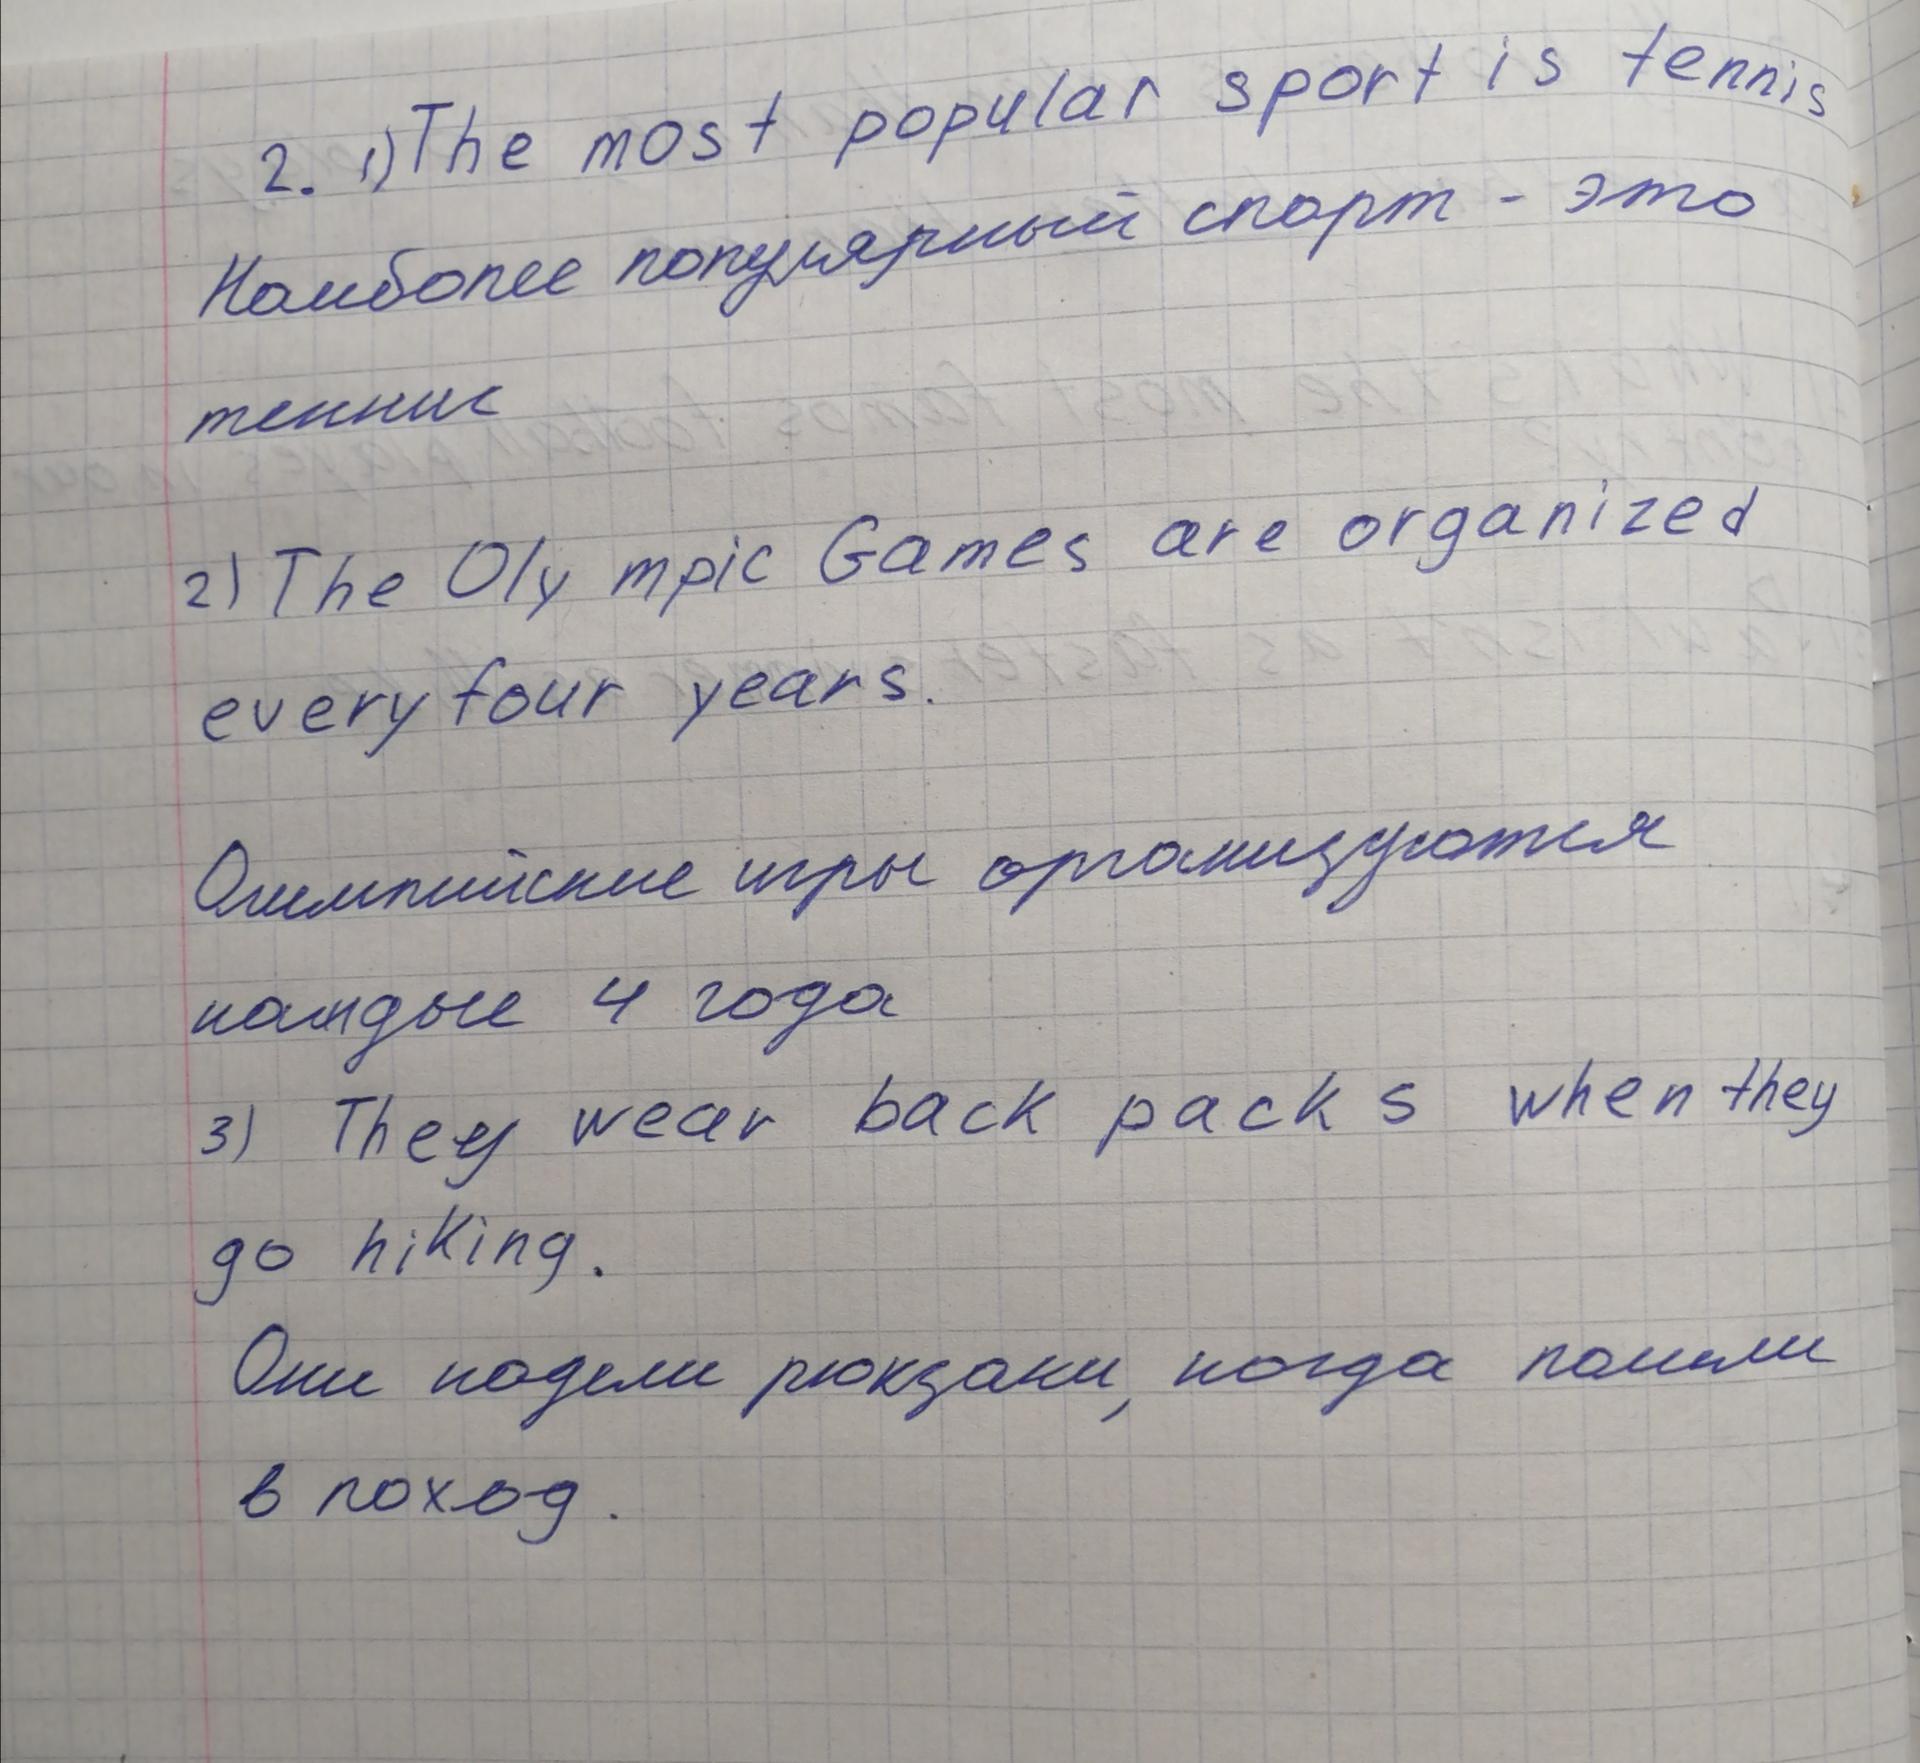 2. 1) The most popular sport is tennis
Наиболее популярный спорт - это
теннис
2) The Olympic Games are organized
every four years.
Олимпийские игры организуются
каждые 4 года
3) They wear back packs when they
go hiking.
Они надели рюкзаки, когда пошли
в поход.